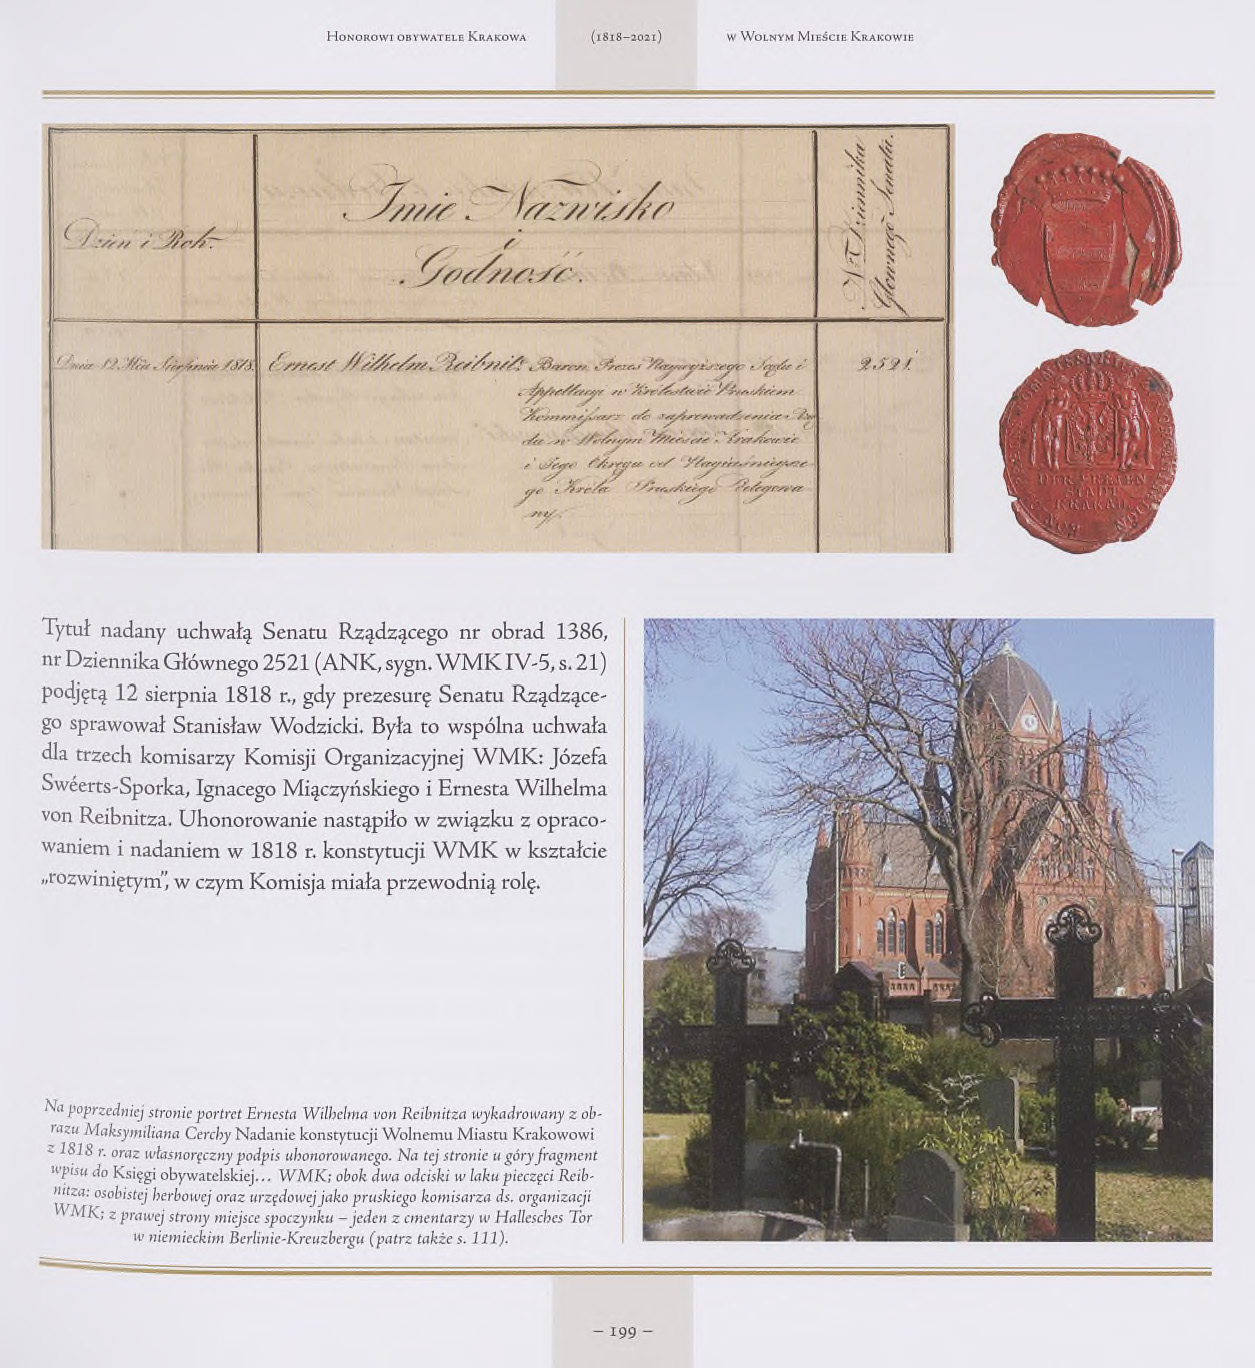 Honorowi obywatele Krakowa (1818–2021) w Wolnym Mieście Krakowie
Dzień i Rok.
Imie Nazwisko
i
Godność.
Nr Dziennika
Głownego Senatu.
Dnia 12 Mca Sierpnia 1818. Ernest Wilhelm Reibnitz Baron Prezes Naywyższego Sądu i 2521.
Appellacyi w Królestwie Pruskiem
Kommissarz do zaprowadzenia Rzą-
du w Wolnym Mieście Krakowie
i Jego Okręgu od Nayiaśniejsze-
go Króla Pruskiego Delegowa-
ny.
DER FREIEN
STADT
KRAKAU
Tytuł nadany uchwałą Senatu Rządzącego nr obrad 1386,
nr Dziennika Głównego 2521 (ANK, sygn. WMK IV-5, s. 21)
podjętą 12 sierpnia 1818 r., gdy prezesurę Senatu Rządzące-
go sprawował Stanisław Wodzicki. Była to wspólna uchwała
dla trzech komisarzy Komisji Organizacyjnej WMK: Józefa
Swéerts-Sporka, Ignacego Miączyńskiego i Ernesta Wilhelma
von Reibnitza. Uhonorowanie nastąpiło w związku z opraco-
waniem i nadaniem w 1818 r. konstytucji WMK w kształcie
„rozwiniętym”, w czym Komisja miała przewodnią rolę.
Na poprzedniej stronie portret Ernesta Wilhelma von Reibnitza wykadrowany z ob-
razu Maksymiliana Cerchy Nadanie konstytucji Wolnemu Miastu Krakowowi
z 1818 r. oraz własnoręczny podpis uhonorowanego. Na tej stronie u góry fragment
wpisu do Księgi obywatelskiej... WMK; obok dwa odciski w laku pieczęci Reib-
nitza: osobistej herbowej oraz urzędowej jako pruskiego komisarza ds. organizacji
WMK; z prawej strony miejsce spoczynku – jeden z cmentarzy w Hallesches Tor
w niemieckim Berlinie-Kreuzbergu (patrz także s. 111).
– 199 –